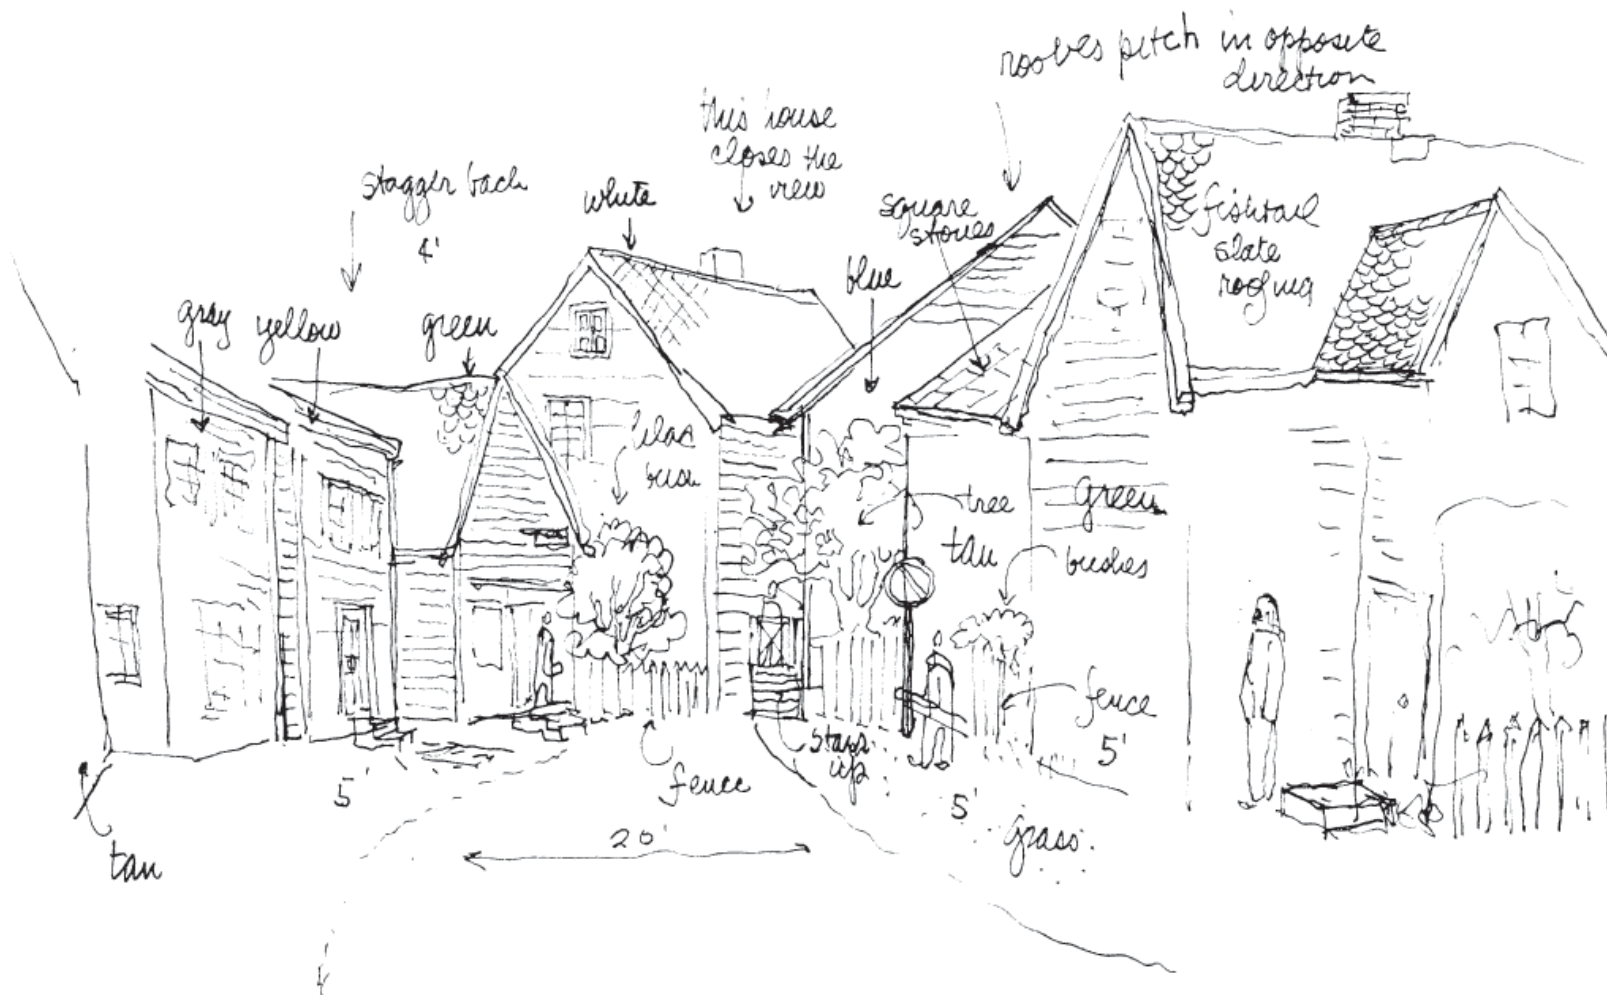 rooves pitch in opposite
direction
this house
closes the
view
stagger back
4'
white
square
stones
fishtail
slate
roofing
blue
gray
yellow
green
lilac
bush
tree
tan
green
bushes
fence
5'
stairs
up
5'
fence
5'
20'
grass.
tan